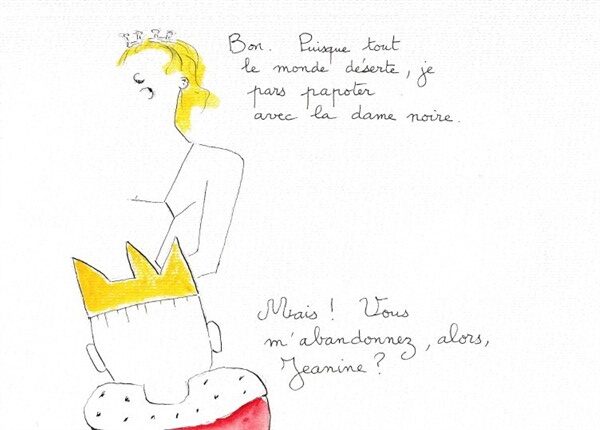 Bon. Puisque tout
le monde déserte, je
pars papoter
avec la dame noire.
Mais ! Vous
m'abandonnez, alors,
Jeanine ?